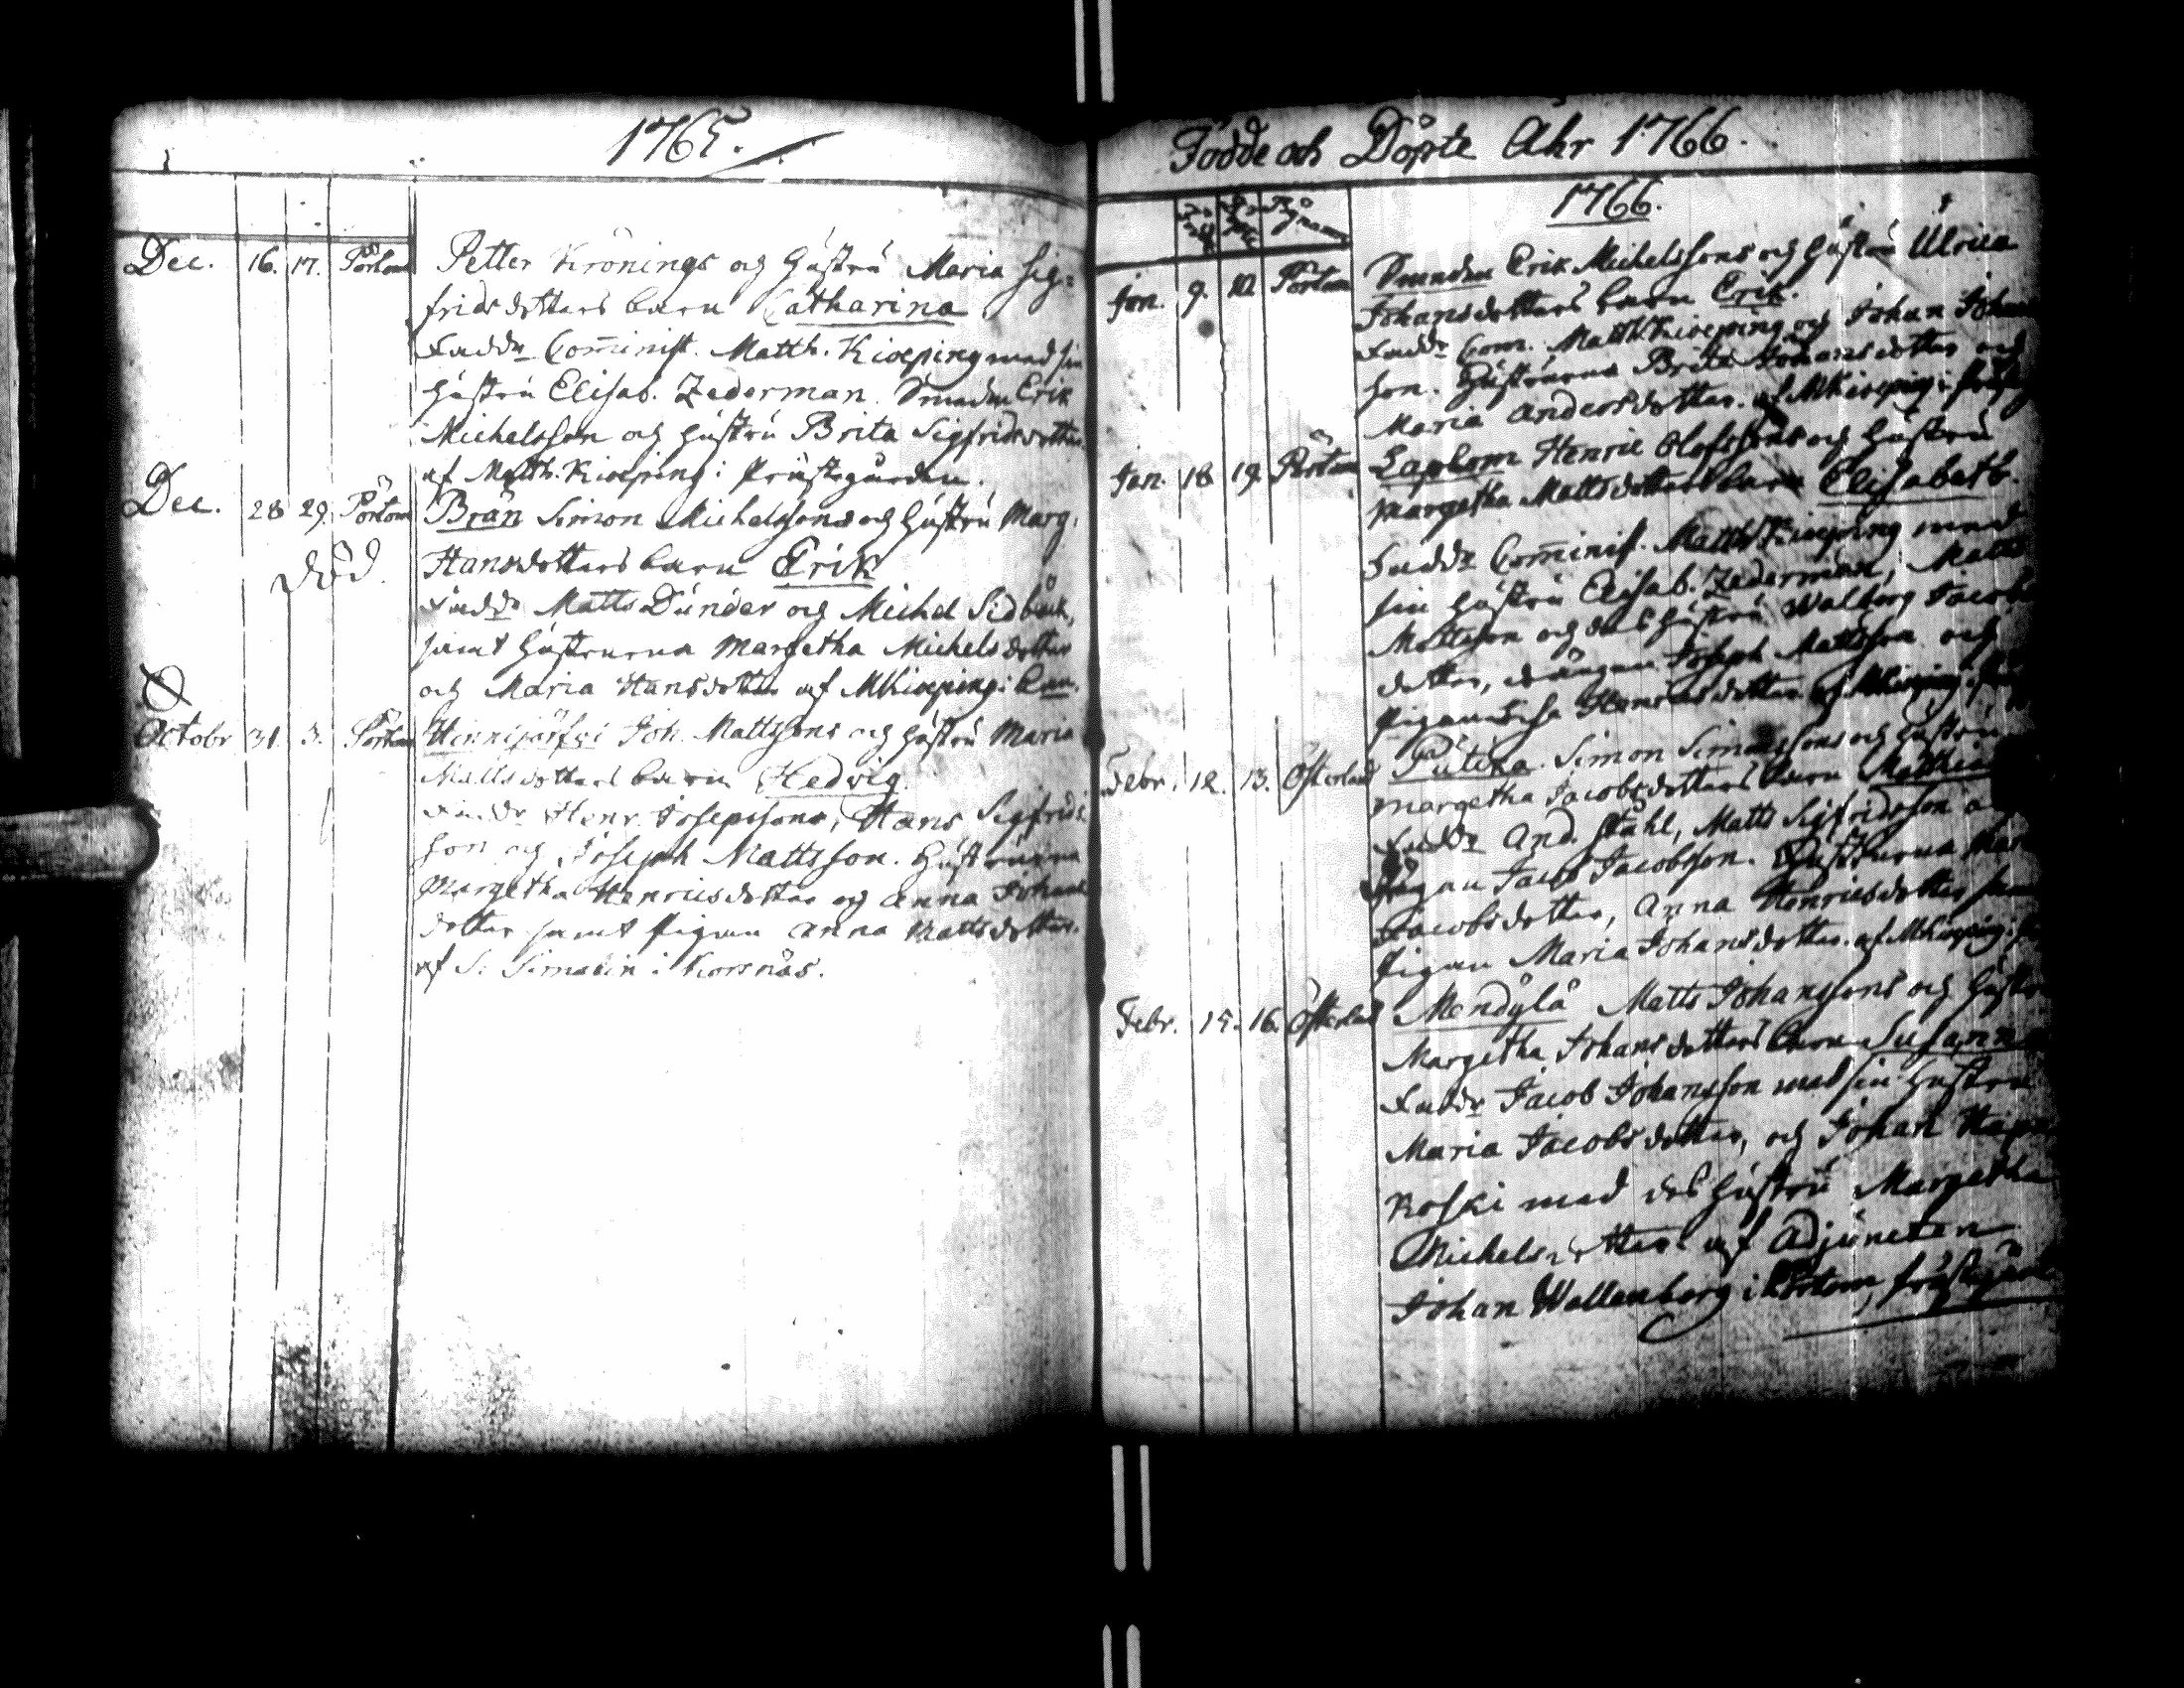 1765.
Dec. 16. 17. Pörtom Petter Krönings och hustru Maria Sig=
fridsdotters barn Catharina
Faddr Com̅inist. Matth. Kioeping med sin
hustru Elisab. Zederman. Smeden Erik
Michelsson och hustru Brita Sigfridsdotter
af Matth. Kioeping i Prästgården.
Dec. 28 29. Pörtom Brän Simon Michelssons och hustru Marg.
död. Hansdotters barn Erik
Faddr Matts Dunder och Michel Sidbäck,
samt hustrurna Margetha Michelsdotter
och Maria Hansdotter af MKioeping i
Octobr 31. 3. Pörtom Hinnijärfvi Joh. Mattssons och hustru Maria
Mattsdotters barn Hedvig.
Faddr Henr. Josepssons, Hans Sigfrids
son och Joseph Mattsson. Hustrurna
Margetha Henricsdotter och Anna Johans
dotter samt pigan Anna Mattsdotter.
af S. Simalin i Korsnäs.
Födde och Döpte Åhr 1766.
1766.
Jan. 9. 10. Pörtom Smeden Erik Michelssons och hustru Ulrica
Johansdotters barn Erik.
Faddr Com. Matth Kioeping och Johan Johans
son. Hustrurna Brita Johansdotter och
Maria Andersdotter. af MKioeping i
Jan. 18 19. Pörtom Laxbom Henric Olofssons och hustru
Margetha Mattsdotters barn Elisabeth.
Faddr Com̅inist. Matth Kioeping med
sin hustru Elisab. Zederman, Matts
Mattsson och des hustru Walborg Jacobs
dotter, drängen Joseph Mattsson och
pigan Henricsdotter af MKioeping i
Febr. 12. 13. Österland Putika Simon Simonssons och hustru
Margetha Jacobsdotters barn Matthias
Faddr And. Ståhl, Matts Sigfridsson
Jacob Jacobsson. Hustrurna Mar
Jacobsdotter, Anna Henricsdotter
pigan Maria Johansdotter. af MKioeping i
Febr. 15. 16. Österland Mendylä Matts Johanssons och hustru
Margetha Johansdotters barn Susanna
Faddr Jacob Johansson med sin hustru
Maria Jacobsdotter, och Johan
Koski med des hustru Margetha
Michelsdotter. af Adjuncten
Johan Wallenborg i Pörtom prästgård